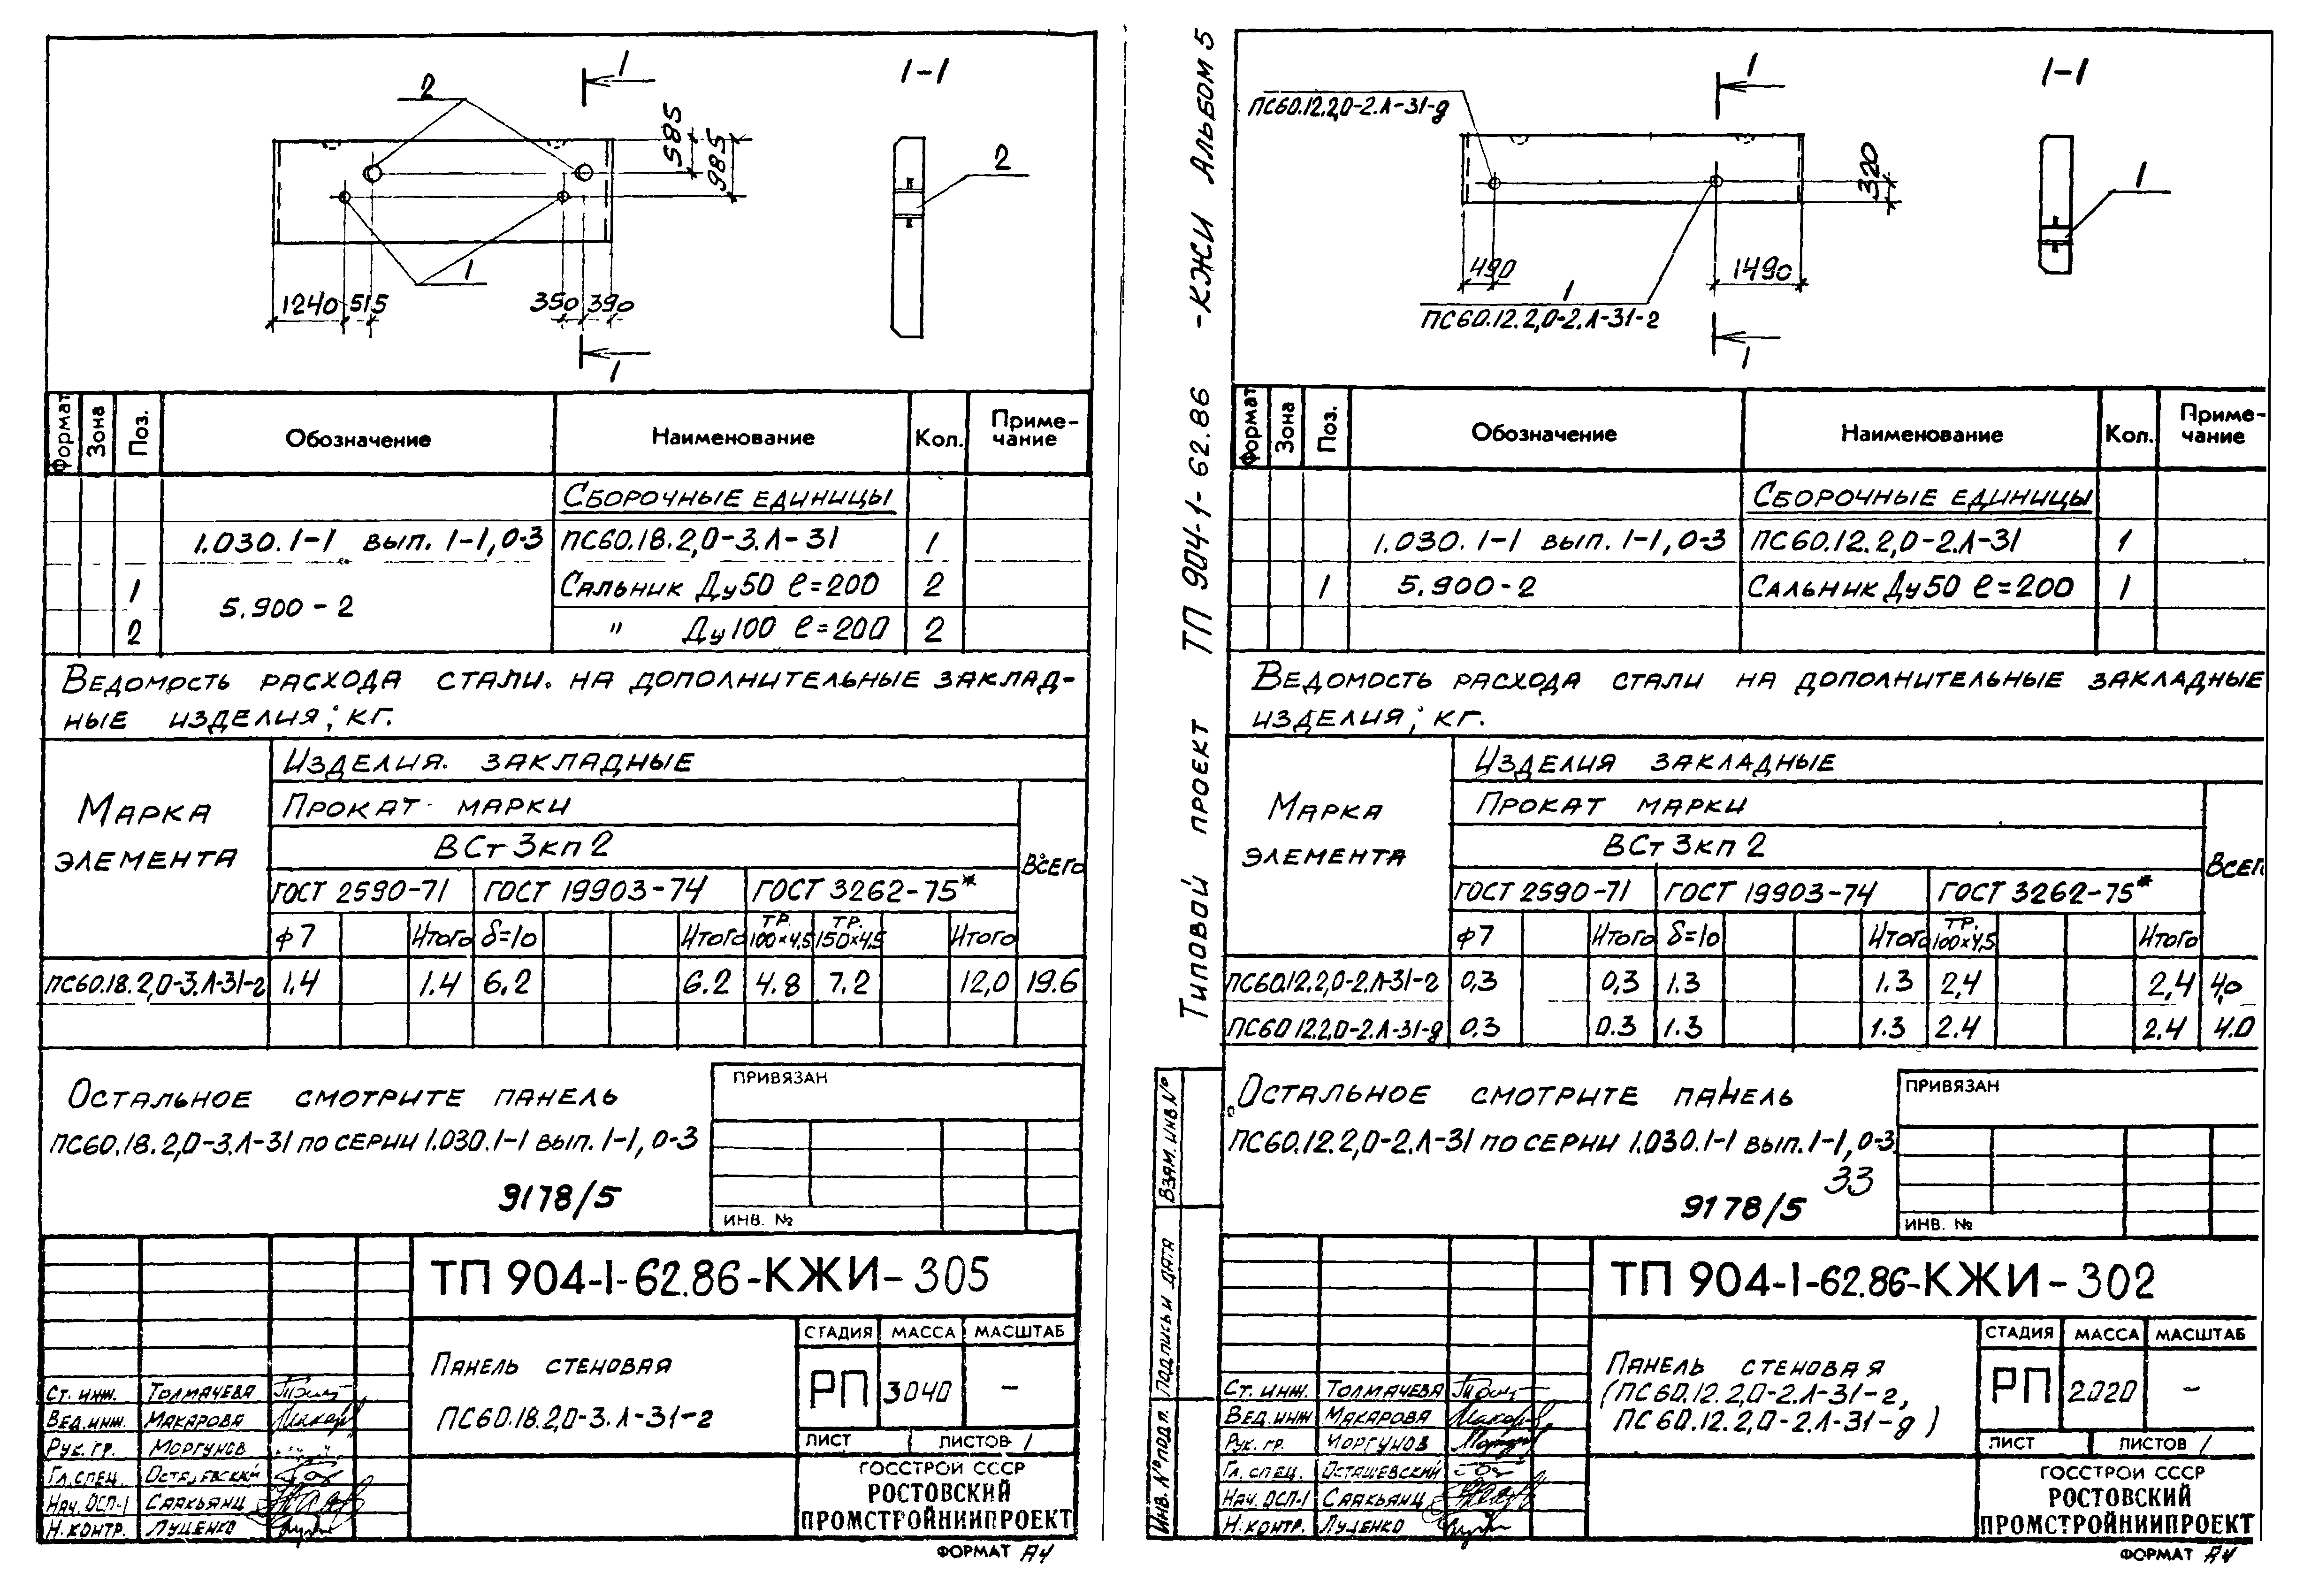 1
1-1
2
585
985
2
1
1240
515
350
390
1
Формат
Зона
Поз.
Обозначение
Наименование
Кол.
Приме-
чание
Сборочные единицы
1.030.1-1 вып. 1-1, 0-3
ПС60.18.2,0-3.Л-31
1
1
5.900-2
Сальник Ду50 ℓ=200
2
2
" Ду100 ℓ=200
2
Ведомость расхода стали. на дополнительные заклад-
ные изделия; кг.
Марка
элемента
Изделия. закладные
Прокат марки
ВСт3кп2
Всего
ГОСТ 2590-71
ГОСТ 19903-74
ГОСТ 3262-75*
ф7
Итого
δ=10
Итого
ТР.
100×4,5
ТР.
150×4.5
Итого
ПС60.18.2,0-3.Л-31-г
1.4
1.4
6.2
6.2
4.8
7.2
12,0
19.6
Остальное смотрите панель
ПС60.18.2,0-3.Л-31 по серии 1.030.1-1 вып. 1-1, 0-3
9178/5
ПРИВЯЗАН
ИНВ. №
ТП 904-1-62.86-КЖИ-305
Панель стеновая
ПС60.18.2,0-3.Л-31-г
СТАДИЯ
МАССА
МАСШТАБ
РП
3040
-
ЛИСТ
ЛИСТОВ 1
ГОССТРОЙ СССР
РОСТОВСКИЙ
ПРОМСТРОЙНИИПРОЕКТ
Ст. инж. Толмачева
Вед.инж. Макарова
Рук. гр. Моргунов
Гл.спец. Осташевский
Нач.ОСП-1 Саакьянц
Н.контр. Луценко
ФОРМАТ А4
Типовой проект ТП 904-1-62.86 -КЖИ Альбом 5
Взам. инв №
Подпись и дата
Инв. № подл.
1
1-1
ПС60.12.2,0-2.Л-31-д
320
1
490
1490
1
ПС60.12.2,0-2.Л-31-г
1
Формат
Зона
Поз.
Обозначение
Наименование
Кол.
Приме-
чание
Сборочные единицы
1.030.1-1 вып. 1-1, 0-3
ПС60.12.2,0-2.Л-31
1
1
5.900-2
Сальник Ду50 ℓ=200
1
Ведомость расхода стали на дополнительные закладные
изделия; кг.
Марка
элемента
Изделия закладные
Прокат марки
ВСт3кп2
Всег
ГОСТ 2590-71
ГОСТ 19903-74
ГОСТ 3262-75*
ф7
Итого
δ=10
Итого
ТР.
100×4,5
Итого
ПС60.12.2,0-2.Л-31-г
0,3
0,3
1.3
1.3
2,4
2,4
4,0
ПС60.12.2,0-2.Л-31-д
0.3
0.3
1.3
1.3
2.4
2.4
4.0
Остальное смотрите панель
ПС60.12.2,0-2.Л-31 по серии 1.030.1-1 вып. 1-1, 0-3
33
9178/5
ПРИВЯЗАН
ИНВ. №
ТП 904-1-62.86-КЖИ-302
Панель стеновая
(ПС60.12.2,0-2.Л-31-г,
ПС60.12.2,0-2.Л-31-д)
СТАДИЯ
МАССА
МАСШТАБ
РП
2020
-
ЛИСТ
ЛИСТОВ 1
ГОССТРОЙ СССР
РОСТОВСКИЙ
ПРОМСТРОЙНИИПРОЕКТ
Ст. инж. Толмачева
Вед.инж Макарова
Рук. гр. Моргунов
Гл. спец. Осташевский
Нач. ОСП-1 Саакьянц
Н. контр. Луценко
ФОРМАТ А4